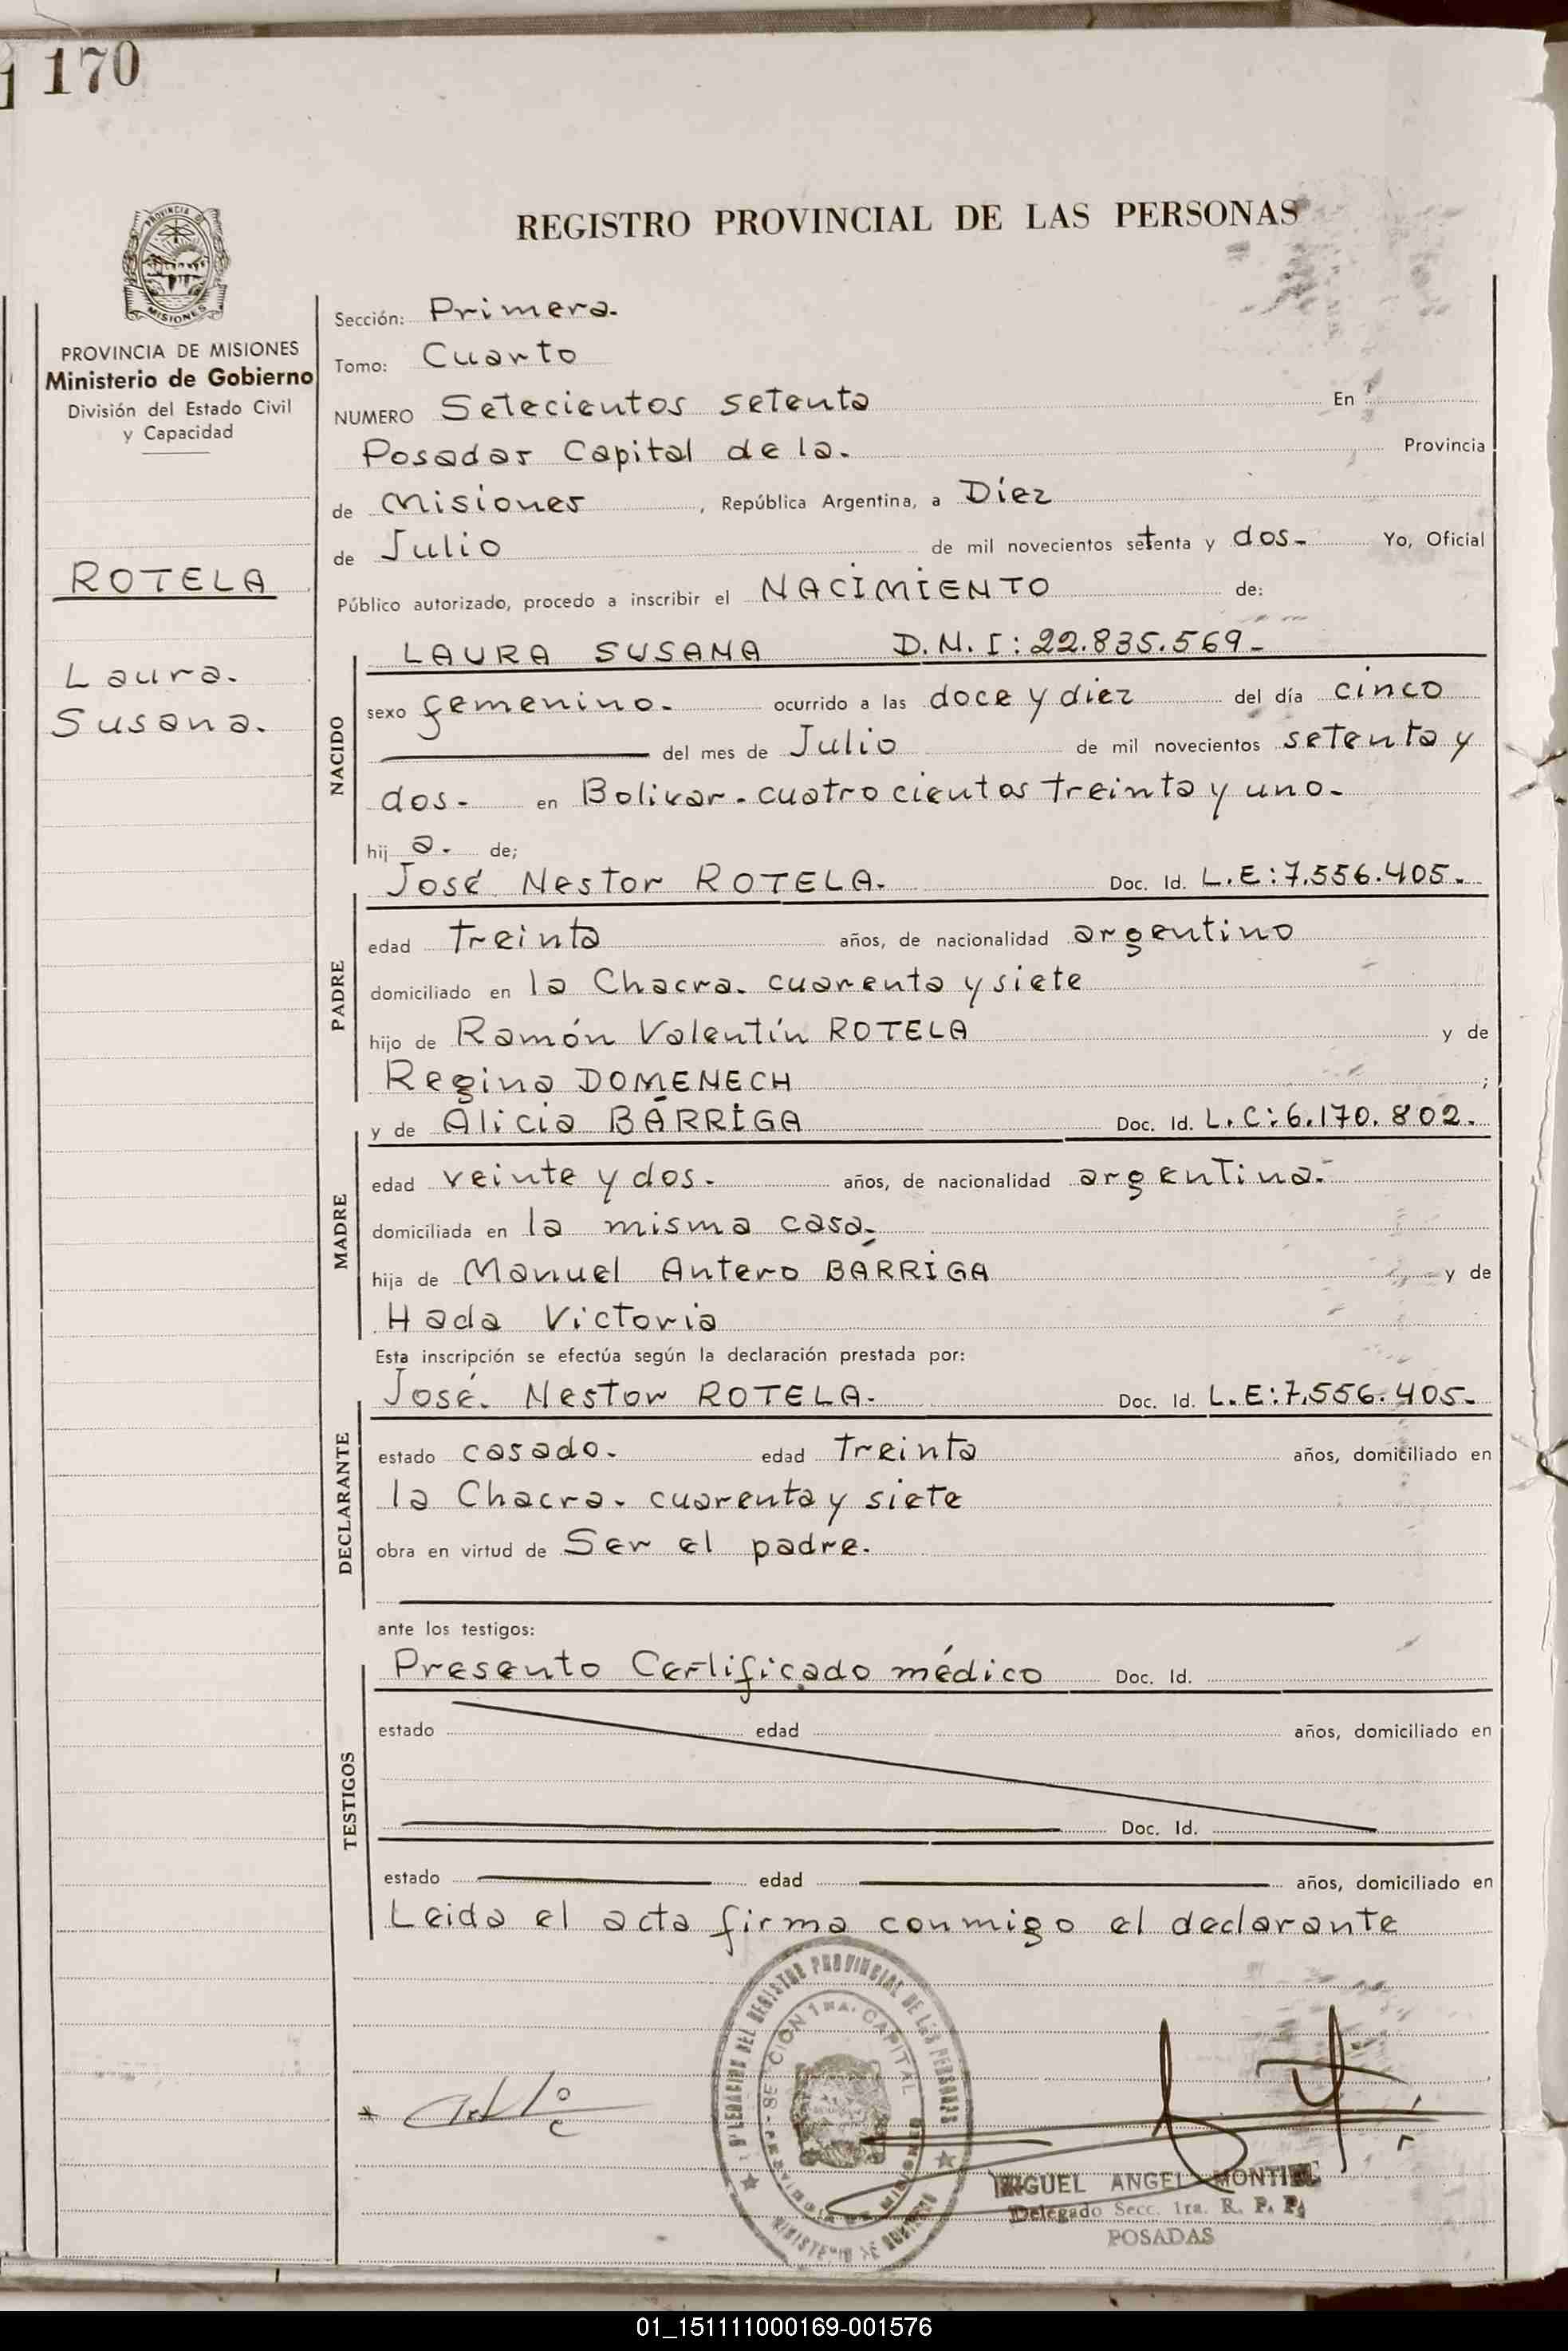 170
REGISTRO PROVINCIAL DE LAS PERSONAS
PROVINCIA DE
MISIONES
PROVINCIA DE MISIONES
Ministerio de Gobierno
División del Estado Civil
y Capacidad
ROTELA
Laura.
Susana.
Sección: Primera.
Tomo: Cuarto
NUMERO Setecientos setenta En
Posadas Capital de la. Provincia
de Misiones, República Argentina, a Diez
de Julio de mil novecientos setenta y dos- Yo, Oficial
Público autorizado, procedo a inscribir el NACIMIENTO de:
NACIDO
LAURA SUSANA D.N.I: 22.835.569-
sexo femenino. ocurrido a las doce y diez del día cinco
del mes de Julio de mil novecientos setenta y
dos- en Bolivar. cuatrocientos treinta y uno-
hij a. de;
PADRE
José Nestor ROTELA. Doc. Id. L.E:7.556.405-
edad treinta años, de nacionalidad argentino
domiciliado en la Chacra. cuarenta y siete
hijo de Ramón Valentín ROTELA y de
Regina DOMENECH ;
MADRE
y de Alicia BÁRRIGA Doc. Id. L.C:6.170.802.
edad veinte y dos. años, de nacionalidad argentina.
domiciliada en la misma casa-
hija de Manuel Antero BÁRRIGA y de
Hada Victoria
Esta inscripción se efectúa según la declaración prestada por:
DECLARANTE
José. Nestor ROTELA. Doc. Id. L.E:7.556.405-
estado casado. edad treinta años, domiciliado en
la Chacra. cuarenta y siete
obra en virtud de Ser el padre.
ante los testigos:
TESTIGOS
Presento Certificado médico Doc. Id.
estado edad años, domiciliado en
Doc. Id.
estado edad años, domiciliado en
Leida el acta firma conmigo el declarante
DELEGACION DEL REGISTRO PROVINCIAL DE LAS PERSONAS
SECCION 1RA. CAPITAL
MINISTERIO DE GOBIERNO
MIGUEL ANGEL MONTIEL
Delegado Secc. 1ra. R. P. P.
POSADAS
01_151111000169-001576